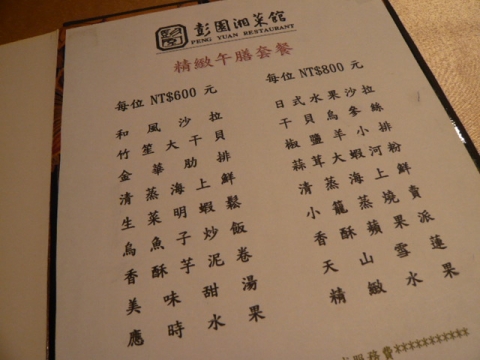 彭園湘菜館
PENG YUAN RESTAURANT
精緻午膳套餐
每位 NT$600 元
和風沙拉
竹笙大干貝
金華肋排
清蒸海上鮮
生菜明蝦鬆
烏魚子炒飯
香酥芋泥卷
美味甜湯
應時水果
每位 NT$800 元
日式水果沙拉
干貝烏參絲
椒鹽羊小排
蒜茸大蝦河粉
清蒸海上鮮
小籠蒸燒賣
香酥蘋果派
天山雪蓮
精緻水果
服務費**********